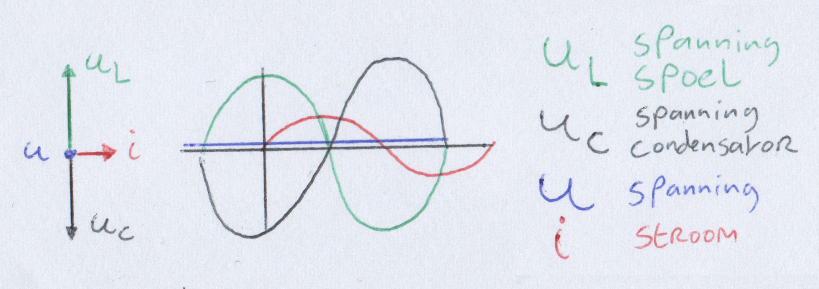 uL
u i
uc
uL spanning
spoel
uc spanning
condensator
u spanning
i stroom